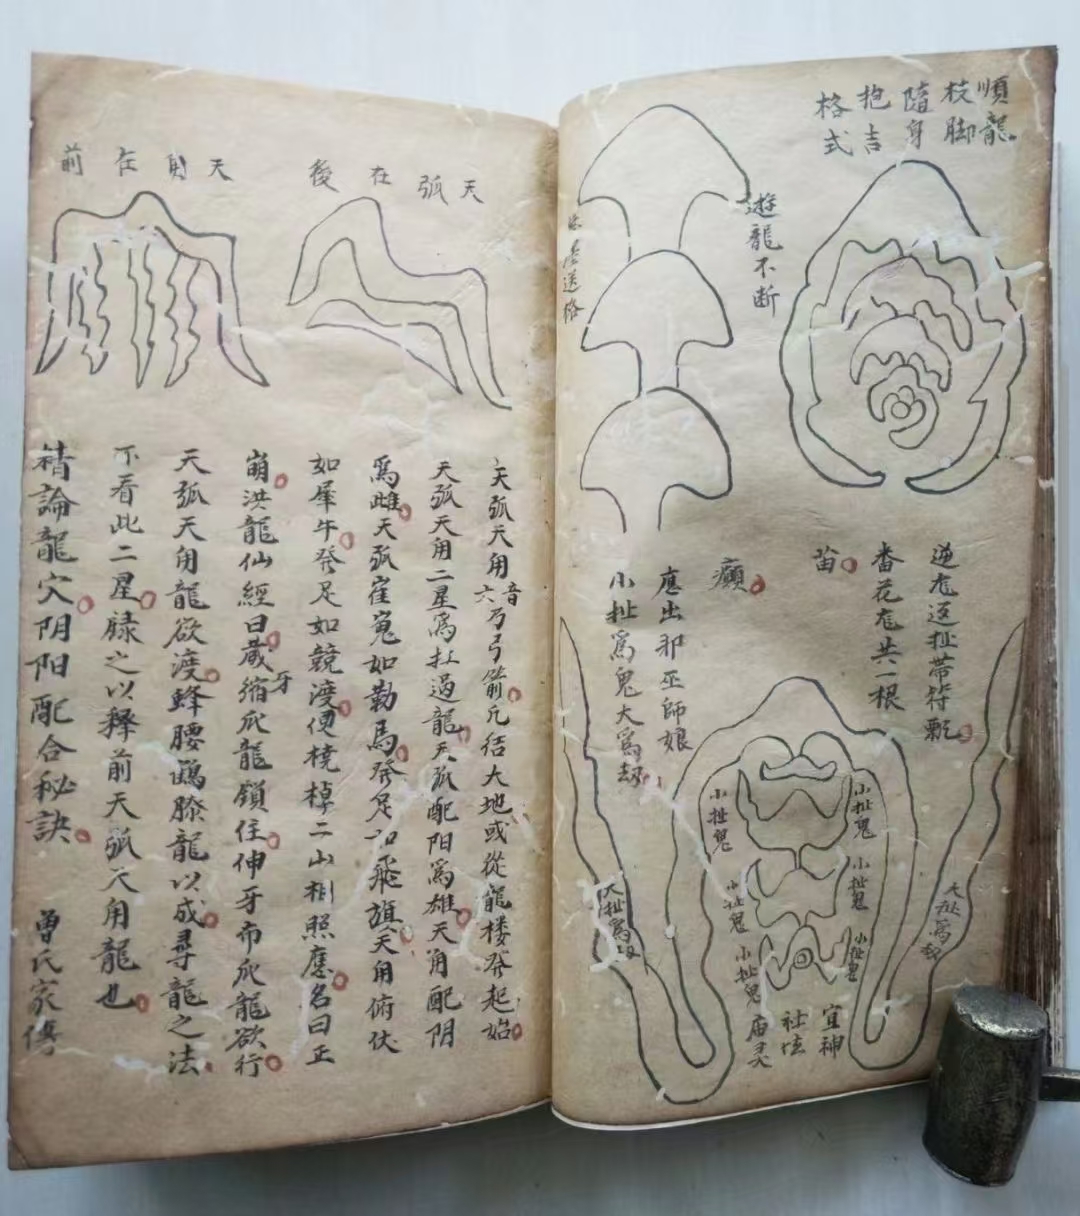 順龍
枝脚
隨身
抱吉
格式
遊龍不断
送格
迎龙送扯帶符
番花龙共一根
苗
癲
應出邪巫師娘
小扯爲鬼大爲刼
小扯鬼
小扯鬼
小扯鬼
小扯鬼
小扯鬼
小扯鬼
大扯爲刼
大扯爲刼
宜神
社坛
庙灵
天弧在後
天角在前
天弧天角音六丂弓箭凡结大地或從龍楼發起始
天弧天角二星爲扛過龍天弧配阳爲雄天角配阴
爲雌天弧崔嵬如勒馬發足如飛旗天角俯伏
如犀牛發足如競渡便橈棹二山相照應名曰正
崩洪龍仙經曰藏牙缩爪龍鎖住伸牙布爪龍欲行
天弧天角龍欲渡蜂腰鶴膝龍以成尋龍之法
不看此二星赫之以釋前天弧天角龍也
精論龍穴阴阳配合秘訣 曾氏家傳